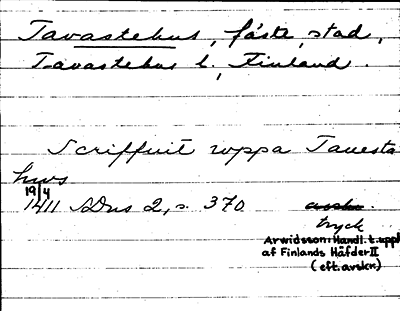 Tavastehus, fäste, stad,
Tavastehus l., Finland.
Scriffuit vppa Tauesta
hws
19/4
1411 SDns 2, s. 370
tryck
Arwidsson: Handl. t. uppl
af Finlands Häfder II
(eft. avskr.)